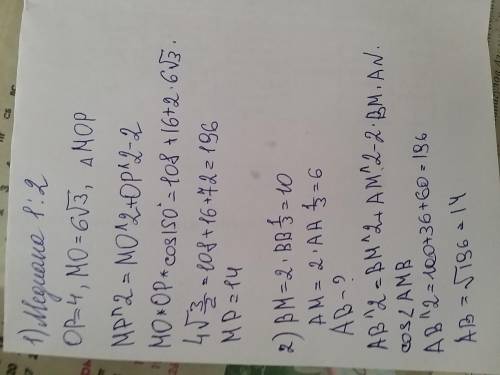 1) Медиана 1:2
OP=4, MO=6√3, △MOP
MP^2 = MO^2+OP^2-2
MO*OP*cos150°=108+16+2·6√3·
4√3/2=108+16+72=196
MP=14
2) BM=2·BB 1/3=10
AM=2·AA 1/3=6
AB-?
AB^2=BM^2+AM^2-2·BM·AN·
cos∠AMB
AB^2=100+36+60=196
AB=√196=14